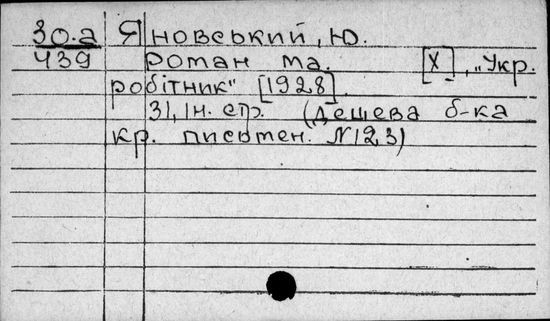 30.а Яновський, Ю.
Ч39 Роман Ма. [Х], „Укр.
робітник" [1928].
31, Iн. стр. (Дешева б-ка
кр. письмен. №12,3)